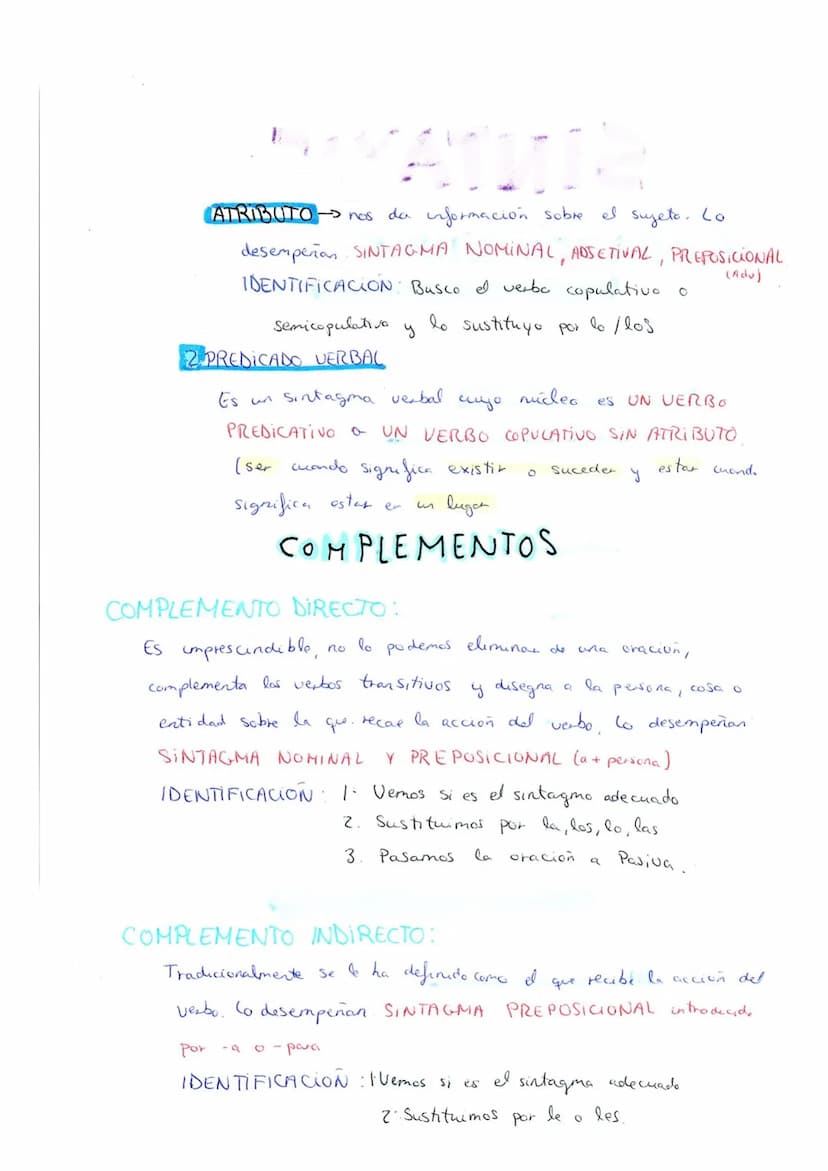 ATRIBUTO → nos da información sobre el sujeto. Lo
desempeñan SINTAGMA NOMINAL, ADJETIVAL, PREPOSICIONAL
(Adv)
IDENTIFICACIÓN: Busco el verbo copulativo o
semicopulativo y lo sustituyo por lo / los
2 PREDICADO VERBAL
Es un sintagma verbal cuyo núcleo es UN VERBO
PREDICATIVO o UN VERBO COPULATIVO SIN ATRIBUTO
(ser cuando significa existir o suceder y estar cuando
significa estar en un lugar
COMPLEMENTOS
COMPLEMENTO DIRECTO:
Es imprescindible, no lo podemos eliminar de una oración,
complementa los verbos transitivos y disegna a la persona, cosa o
entidad sobre la que recae la acción del verbo. Lo desempeñan
SINTAGMA NOMINAL Y PREPOSICIONAL (a + persona)
IDENTIFICACIÓN: 1. Vemos si es el sintagma adecuado
2. Sustituimos por la, los, lo, las
3. Pasamos la oración a Pasiva.
COMPLEMENTO INDIRECTO:
Tradicionalmente se le ha definido como el que recibe la acción del
verbo. Lo desempeñan SINTAGMA PREPOSICIONAL introducido
por -a o -para
IDENTIFICACIÓN: 1. Vemos si es el sintagma adecuado
2. Sustituimos por le o les.